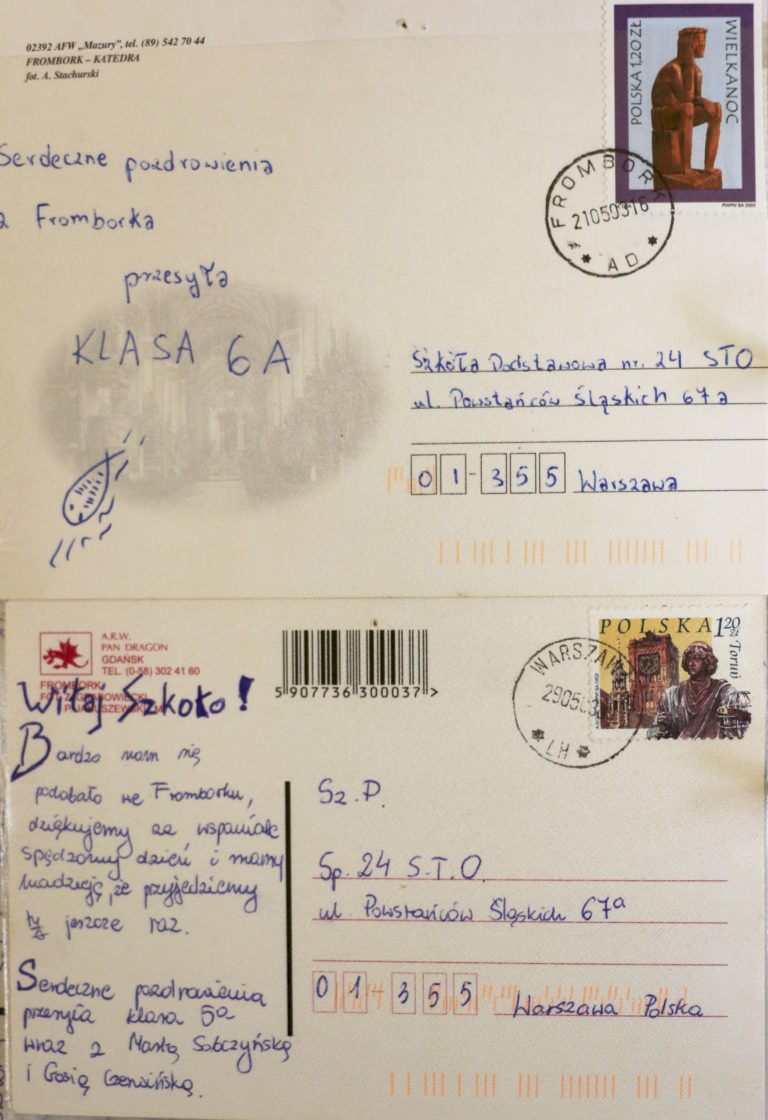 02392 AFW „Mazury”, tel. (89) 542 70 44
FROMBORK – KATEDRA
fot. A. Stachurski
POLSKA 1,20 ZŁ
WIELKANOC
PWPW SA 2003
FROMBORK
21050316
AD
Serdeczne pozdrowienia
z Fromborka
przesyła
KLASA 6A
Szkoła Podstawowa nr. 24 STO
ul. Powstańców Śląskich 67a
01-355 Warszawa
A.R.W.
PAN DRAGON
GDAŃSK
TEL. (0-58) 302 41 60
FROMBORK
5 907736 300037 >
POLSKA 1 20 zł
Toruń
WARSZAW
290503
LH
Witaj szkoło!
Bardzo nam się
podobało we Fromborku,
dziękujemy za wspaniale
spędzony dzień i mamy
nadzieję, że przyjedziemy
tu jeszcze raz.
Serdeczne pozdrowienia
przesyła klasa 5a
wraz z Martą Sobczyńską
i Gosią Czerwińską.
Sz. P.
Sp. 24 S.T.O.
ul. Powstańców Śląskich 67a
01-355 Warszawa Polska